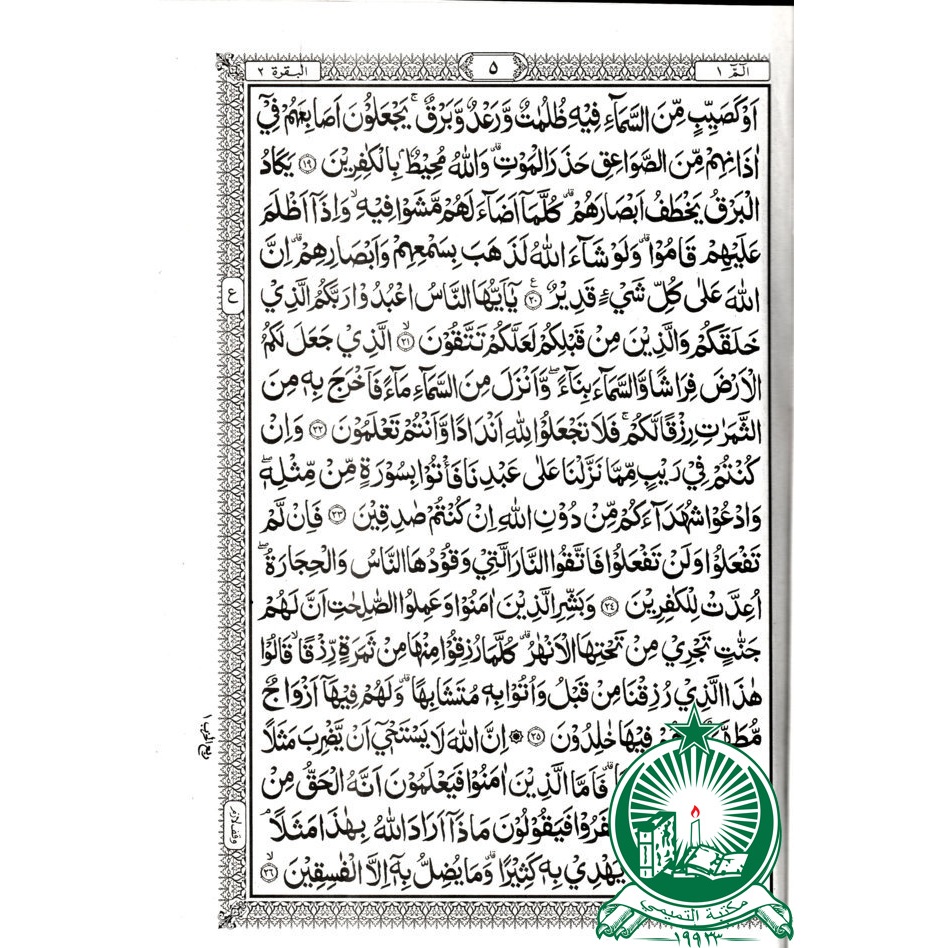 الٓمّٓ ١
٥
البقرة ٢
اَوْ كَصَيِّبٍ مِّنَ السَّمَآءِ فِيْهِ ظُلُمٰتٌ وَّرَعْدٌ وَّبَرْقٌ ۚ يَجْعَلُوْنَ اَصَابِعَهُمْ فِيْٓ
اٰذَانِهِمْ مِّنَ الصَّوَاعِقِ حَذَرَ الْمَوْتِ ؕ وَاللّٰهُ مُحِيْطٌۢ بِالْكٰفِرِيْنَ ١٩ يَكَادُ
الْبَرْقُ يَخْطَفُ اَبْصَارَهُمْ ؕ كُلَّمَآ اَضَآءَ لَهُمْ مَّشَوْا فِيْهِ ۙ وَاِذَآ اَظْلَمَ
عَلَيْهِمْ قَامُوْا ؕ وَلَوْ شَآءَ اللّٰهُ لَذَهَبَ بِسَمْعِهِمْ وَاَبْصَارِهِمْ ؕ اِنَّ
اللّٰهَ عَلٰى كُلِّ شَيْءٍ قَدِيْرٌ ٢٠ يٰٓاَيُّهَا النَّاسُ اعْبُدُوْا رَبَّكُمُ الَّذِيْ
خَلَقَكُمْ وَالَّذِيْنَ مِنْ قَبْلِكُمْ لَعَلَّكُمْ تَتَّقُوْنَ ٢١ ۙ الَّذِيْ جَعَلَ لَكُمُ
الْاَرْضَ فِرَاشًا وَّالسَّمَآءَ بِنَآءً ۖ وَّاَنْزَلَ مِنَ السَّمَآءِ مَآءً فَاَخْرَجَ بِهٖ مِنَ
الثَّمَرٰتِ رِزْقًا لَّكُمْ ۚ فَلَا تَجْعَلُوْا لِلّٰهِ اَنْدَادًا وَّاَنْتُمْ تَعْلَمُوْنَ ٢٢ وَاِنْ
كُنْتُمْ فِيْ رَيْبٍ مِّمَّا نَزَّلْنَا عَلٰى عَبْدِنَا فَأْتُوْا بِسُوْرَةٍ مِّنْ مِّثْلِهٖ ۖ
وَادْعُوْا شُهَدَآءَكُمْ مِّنْ دُوْنِ اللّٰهِ اِنْ كُنْتُمْ صٰدِقِيْنَ ٢٣ فَاِنْ لَّمْ
تَفْعَلُوْا وَلَنْ تَفْعَلُوْا فَاتَّقُوا النَّارَ الَّتِيْ وَقُوْدُهَا النَّاسُ وَالْحِجَارَةُ ۖ
اُعِدَّتْ لِلْكٰفِرِيْنَ ٢٤ وَبَشِّرِ الَّذِيْنَ اٰمَنُوْا وَعَمِلُوا الصّٰلِحٰتِ اَنَّ لَهُمْ
جَنّٰتٍ تَجْرِيْ مِنْ تَحْتِهَا الْاَنْهٰرُ ؕ كُلَّمَا رُزِقُوْا مِنْهَا مِنْ ثَمَرَةٍ رِّزْقًا ۙ قَالُوْا
هٰذَا الَّذِيْ رُزِقْنَا مِنْ قَبْلُ وَاُتُوْا بِهٖ مُتَشَابِهًا ؕ وَلَهُمْ فِيْهَآ اَزْوَاجٌ
فِيْهَا خٰلِدُوْنَ ٢٥ ۞ اِنَّ اللّٰهَ لَا يَسْتَحْيٖٓ اَنْ يَّضْرِبَ مَثَلًا
فَاَمَّا الَّذِيْنَ اٰمَنُوْا فَيَعْلَمُوْنَ اَنَّهُ الْحَقُّ مِنْ
فَيَقُوْلُوْنَ مَاذَآ اَرَادَ اللّٰهُ بِهٰذَا مَثَلًا ۘ
يَهْدِيْ بِهٖ كَثِيْرًا ؕ وَمَا يُضِلُّ بِهٖٓ اِلَّا الْفٰسِقِيْنَ ٢٦ ۙ
ع
ربع الحزب ١
وقف لازم
مكتبة التميمي
١٩٩٣